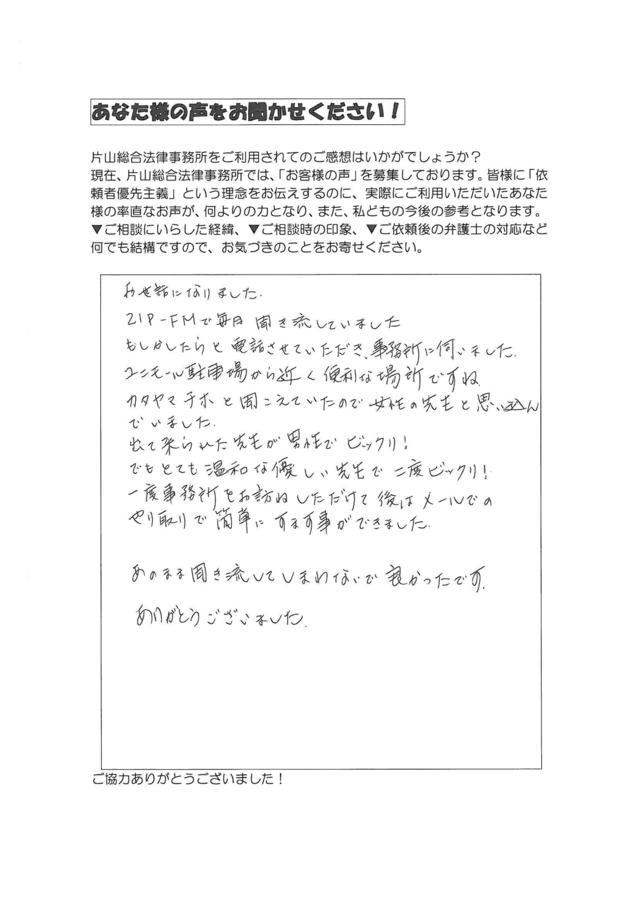 あなた様の声をお聞かせください！
片山総合法律事務所をご利用されてのご感想はいかがでしょうか？
現在、片山総合法律事務所では、「お客様の声」を募集しております。皆様に「依
頼者優先主義」という理念をお伝えするのに、実際にご利用いただいたあなた
様の率直なお声が、何よりの力となり、また、私どもの今後の参考となります。
▼ご相談にいらした経緯、▼ご相談時の印象、▼ご依頼後の弁護士の対応など
何でも結構ですので、お気づきのことをお寄せください。
お世話になりました.
ZIP-FMで毎日聞き流していました
もしかしたらと電話させていただき、事務所に伺いました.
ユニモール駐車場から近く便利な場所ですね
カタヤマチホと聞こえていたので女性の先生と思い込ん
でいました.
出て来られた先生が男性でビックリ!
でもとても温和な優しい先生で二度ビックリ!
一度事務所をお訪ねしただけで後はメールでの
やり取りで簡単にすます事ができました.
あのまま聞き流してしまわないで良かったです.
ありがとうございました.
ご協力ありがとうございました！